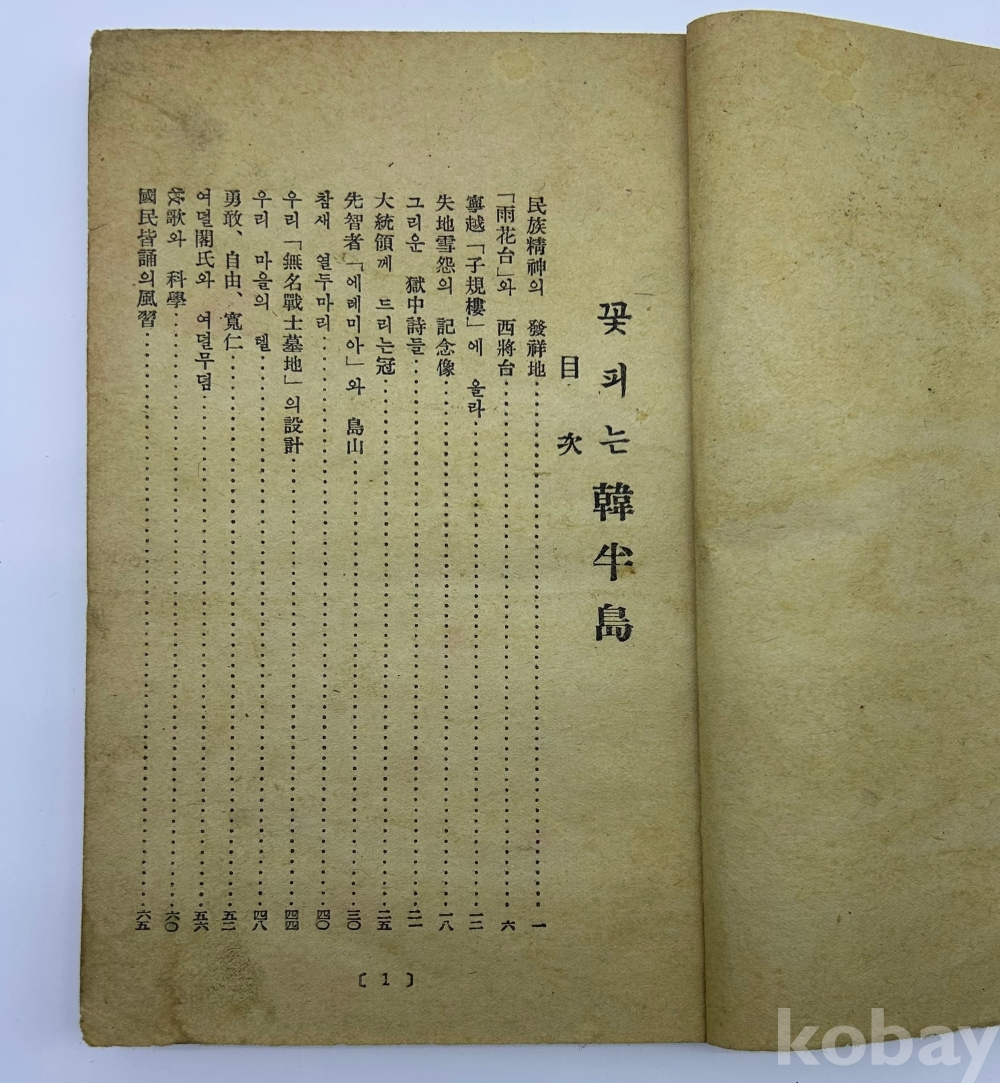 꽃피는 韓半島
目次
民族精神의 發祥地 一
「雨花台」와 西將台 六
寧越「子規樓」에 올라 一二
失地雪怨의 記念像 一八
그리운 獄中詩들 二一
大統領께 드리는 冠 二五
先智者「에레미아」와 島山 三〇
참새 열두마리 四〇
우리「無名戰士墓地」의 設計 四四
우리 마을의 텔 四八
勇敢、自由、寬仁 五二
여덜閣氏와 여덜무덤 五六
歌와 科學 六〇
國民皆誦의 風習 六五
〔 1 〕
kobay